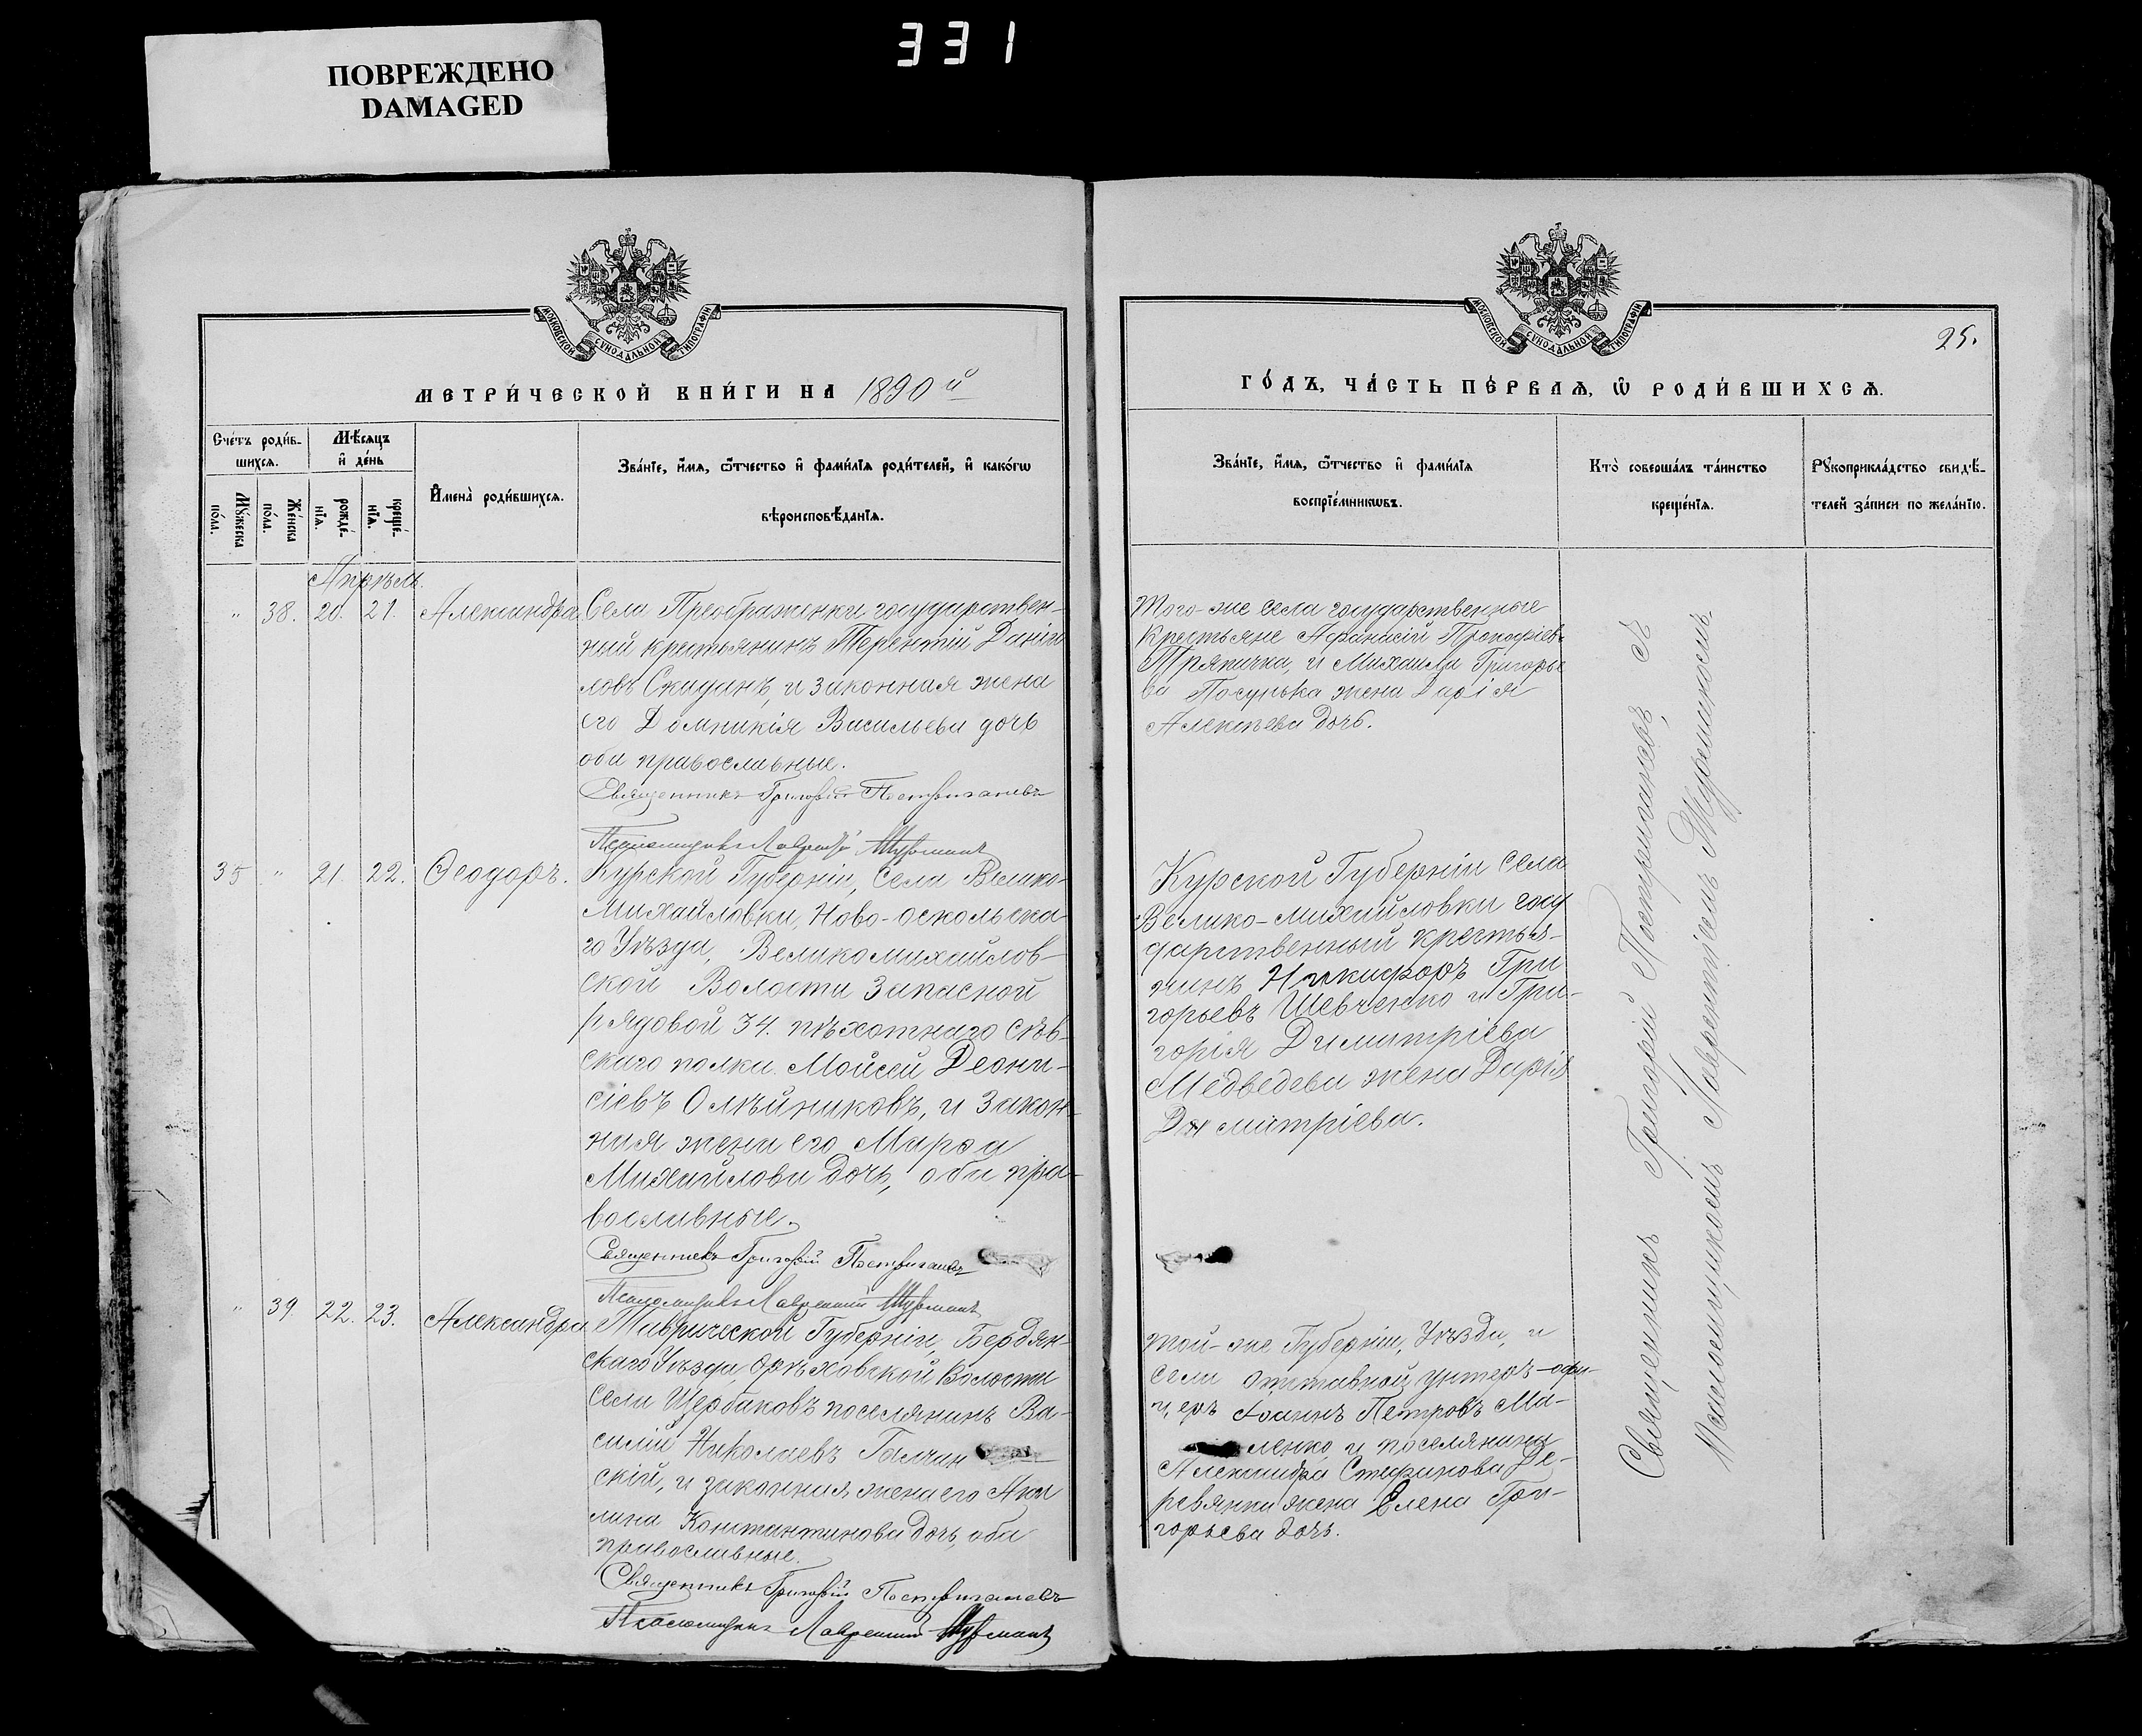 331
ПОВРЕЖДЕНО
DAMAGED
МОСКОВСКОЙ СѴНОДАЛЬНОЙ ТИПОГРАФІИ
МЕТРИ́ЧЕСКОЙ КНИ́ГИ НА 1890 й
Сче́тъ роди́в-
шихсѧ.
Мѣ́сѧцъ
и҆ де́нь
Мꙋ́жеска
по́ла.
Же́нска
по́ла.
рожде́-
нїѧ.
креще́-
нїѧ.
И҆мена̀ роди́вшихсѧ.
Зва́нїе, и҆́мѧ, ѻ҆́тчество и҆ фами́лїѧ роди́телей, и҆ како́гѡ
вѣроисповѣ́данїѧ.
Апрѣль.
" 38. 20. 21. Александра
Села Преображенки государствен-
ный крестьянинъ Терентій Даніи-
ловъ Скиданъ, и законная жена
его Домникія Васильева дочь
оба православные.
Священникъ Григорій Постригачевъ
Псаломщикъ Лаврентій
35 " 21. 22. Ѳеодоръ.
Курской Губерніи, Села Велико-
Михайловки, Ново-оскольска-
го Уѣзда, Великомихайлов-
ской Волости Запасной
рядовой 34. пѣхотнаго Сѣв-
скаго полка. Мойсей Деони-
сіевъ Олѣйниковъ, и Закон-
ная жена его Марѳа
Михайлова дочь, оба пра-
вославные.
Священникъ Григорій Постригачевъ
Псаломщикъ Лаврентій
" 39 22. 23. Александра
Таврической Губерніи, Бердян-
скаго Уѣзда, Орѣховской Волости
Села Щербаковъ поселянинъ Ва-
силій Николаевъ
скій, и законная жена его Аки
лина Константинова дочь, оба
православные.
Священникъ Григорій Постригачевъ
Псаломщикъ Лаврентій
МОСКОВСКОЙ СѴНОДАЛЬНОЙ ТИПОГРАФІИ
25.
ГО́ДЪ, ЧА́СТЬ ПЕ́РВАѦ, Ѡ҆ РОДИ́ВШИХСѦ.
Зва́нїе, и҆́мѧ, ѻ҆́тчество и҆ фами́лїѧ
воспрїе́мникѡвъ.
Кто̀ соверша́лъ та́инство
креще́нїѧ.
Рꙋкоприкла́дство свидѣ́-
телей за́писи по жела́нїю.
Того-же села государственные
Крестьяне Афанасій Прокофіевъ
Тряпичка, и Михаила Григорье
ва жена Дарія
Алексѣева дочь.
Курской Губерніи Села
Велико-михайловки госу
дарственный крестья-
нинъ Никифоръ Гри
горьевъ Шевченко и Гри-
горія Димитріева
Медведева жена Дарія
Димитріева.
Той-же Губерніи, Уѣзда, и
села отставной унтеръ-офи-
церъ Іоаннъ Петровъ Ма-
ленко и поселянина
Александра Стефанова Де-
ревянки жена Елена Гри-
горьева дочь.
Священникъ Григорій Постригачевъ, съ
Псаломщикомъ Лаврентіемъ